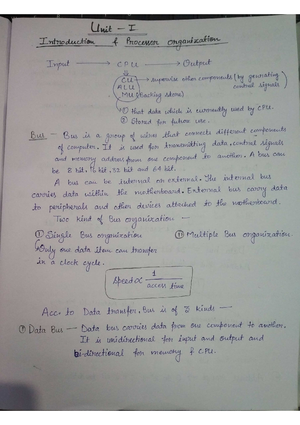 Unit - I
Introduction & Processor organization
Input → CPU → Output
CU → supervise other components (by generating control signals
ALU
MU (Backing store)
① that data which is currently used by CPU.
② Stored for future use.
Bus - Bus is a group of wires that connects different components
of computer. It is used for transmitting data, control signals
and memory address from one component to another. A bus can
be 8 bit, 16 bit, 32 bit and 64 bit.
A bus can be internal or external. The internal bus
carries data within the motherboard. External bus carry data
to peripherals and other devices attached to the motherboard.
Two kind of Bus organization -
① Single Bus organization ② Multiple Bus organization
Only one data item can transfer
in a clock cycle.
Speed ∝ 1 / access time
Acc. to Data transfer, Bus is of 3 kinds -
① Data Bus - Data bus carries data from one component to another.
It is unidirectional for input and output and
bi-directional for memory & CPU.